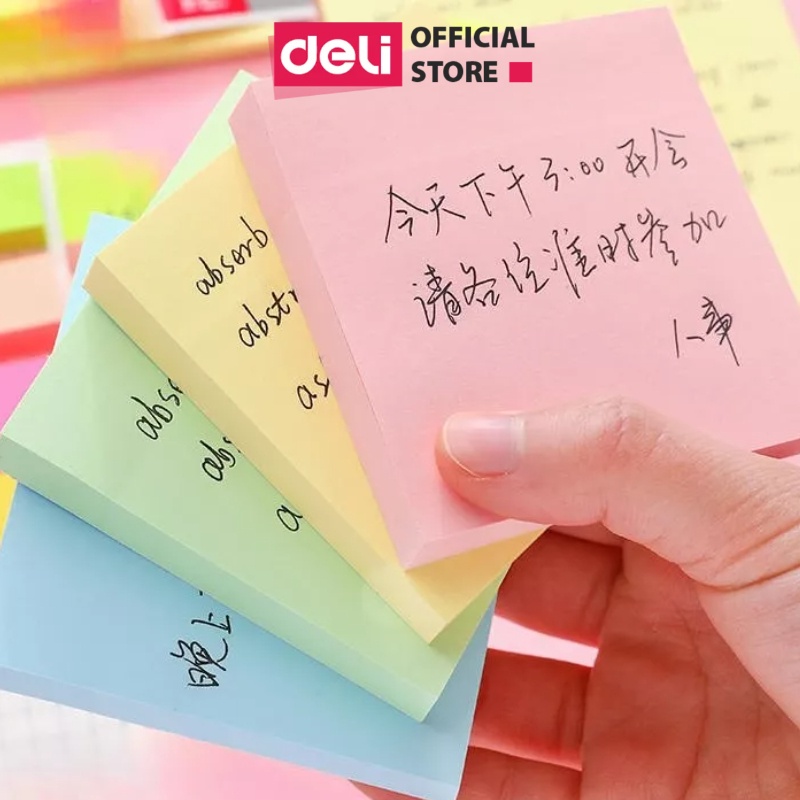 deli OFFICIAL
STORE
今天下午3:00开会
请各位准时参加
人事
absorb
abst
as
abs
abs
a
晚上